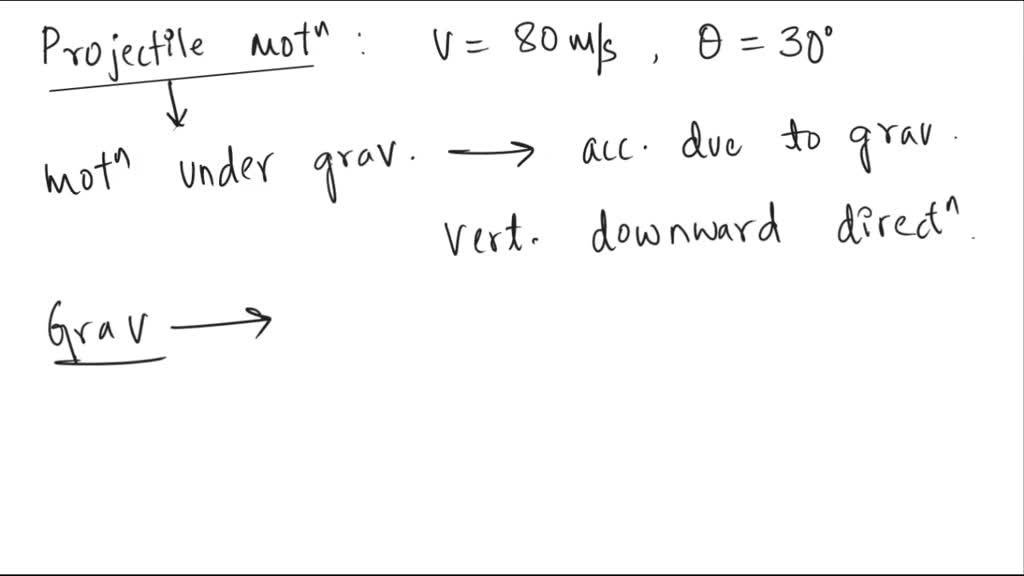 Projectile motⁿ : v = 80 m/s , θ = 30°
motⁿ under grav. → acc. due to grav.
vert. downward directⁿ.
Grav →